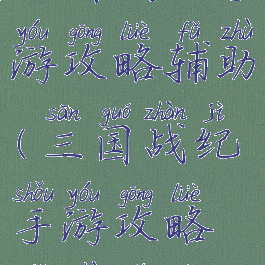 yóu gōng lüè fǔ zhù
游攻略辅助
sān guó zhàn jì
(三国战纪
shǒu yóu gōng lüè
手游攻略